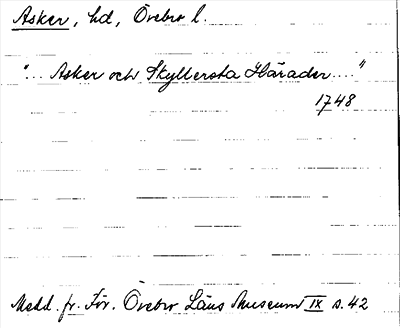 Asker, hd, Örebro l.
"... Asker och Skyllersta Härader ...."
1748
Medd. fr. För. Örebro Läns Museum IX s. 42